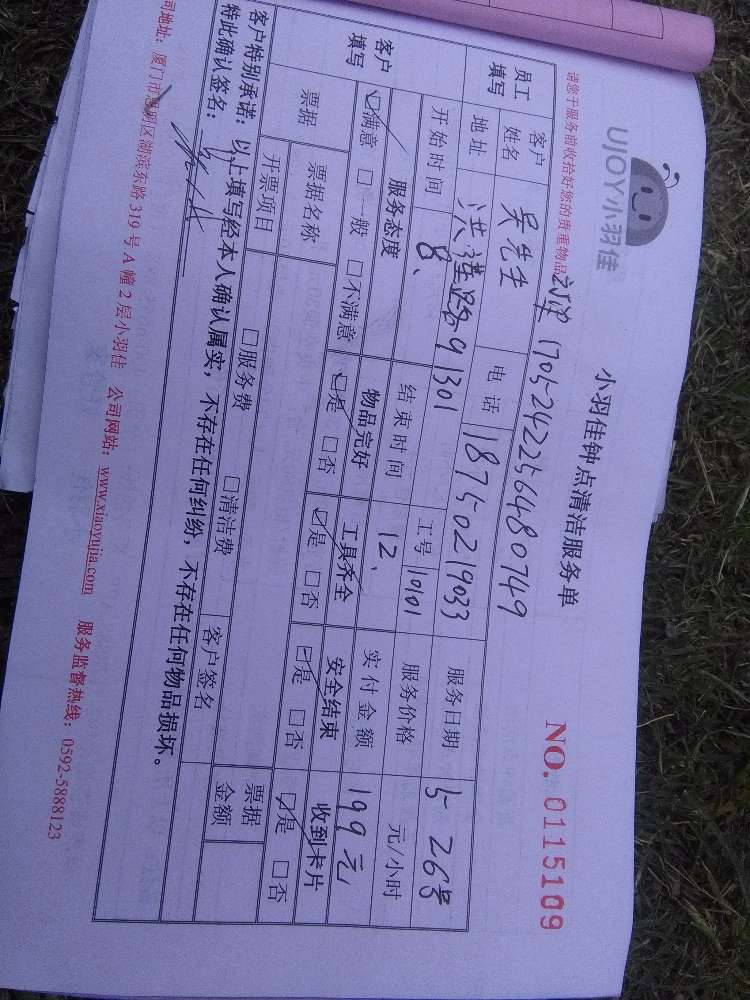 UJOY小羽佳
小羽佳钟点清洁服务单
NO. 0115109
请您于服务前收拾好您的贵重物品
1705242256480749
员工填写 客户姓名 吴先生 电话 18750219033 服务日期 5-26号
地址 洪莲路91301 工号 10101 服务价格 元/小时
客户填写 开始时间 8、 结束时间 12、 实付金额 199元
服务态度 物品完好 工具齐全 安全结束 收到卡片
☑满意 □一般 □不满意 ☑是 □否 ☑是 □否 ☑是 □否 ☑是 □否
票据 票据名称 □服务费 □清洁费 客户签名 票据金额
开票项目
客户特别承诺：以上填写经本人确认属实，不存在任何纠纷，不存在任何物品损坏。
特此确认签名：
司地址：厦门市思明区湖滨东路319号A幢2层小羽佳 公司网站：www.xiaoyujia.com 服务监督热线：0592-5888123